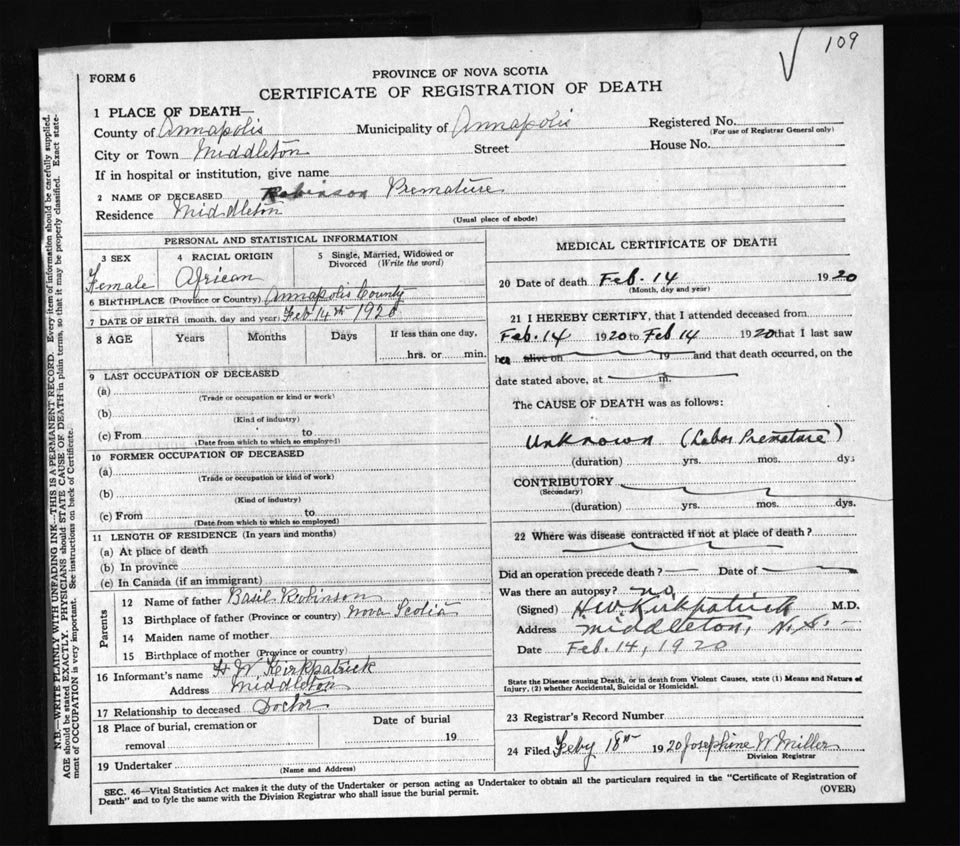 109
FORM 6
PROVINCE OF NOVA SCOTIA
CERTIFICATE OF REGISTRATION OF DEATH
1 PLACE OF DEATH—
County of Annapolis Municipality of Annapolis Registered No.
(For use of Registrar General only)
City or Town Middleton Street House No.
If in hospital or institution, give name
2 NAME OF DECEASED Robinson Premature
Residence Middleton
(Usual place of abode)
PERSONAL AND STATISTICAL INFORMATION
3 SEX 4 RACIAL ORIGIN 5 Single, Married, Widowed or Divorced (Write the word)
Female African
6 BIRTHPLACE (Province or Country) Annapolis County
7 DATE OF BIRTH (month, day and year) Feb 14th 1920
8 AGE Years Months Days If less than one day,
hrs. or min.
9 LAST OCCUPATION OF DECEASED
(a)
(Trade or occupation or kind or work)
(b)
(Kind of industry)
(c) From to
(Date from which to which so employed)
10 FORMER OCCUPATION OF DECEASED
(a)
(Trade or occupation or kind of work)
(b)
(Kind of industry)
(c) From to
(Date from which to which so employed)
11 LENGTH OF RESIDENCE (In years and months)
(a) At place of death
(b) In province
(c) In Canada (if an immigrant)
Parents
12 Name of father Basil Robinson
13 Birthplace of father (Province or country) Nova Scotia
14 Maiden name of mother
15 Birthplace of mother (Province or country)
16 Informant's name H W Kirkpatrick
Address Middleton
17 Relationship to deceased Doctor
18 Place of burial, cremation or removal Date of burial
19
19 Undertaker
(Name and Address)
MEDICAL CERTIFICATE OF DEATH
20 Date of death Feb. 14 1920
(Month, day and year)
21 I HEREBY CERTIFY, that I attended deceased from
Feb. 14 1920 to Feb 14 1920 that I last saw
her alive on 19 and that death occurred, on the
date stated above, at m.
The CAUSE OF DEATH was as follows:
Unknown (Labor Premature)
(duration) yrs. mos. dys
CONTRIBUTORY
(Secondary)
(duration) yrs. mos. dys.
22 Where was disease contracted if not at place of death?
Did an operation precede death? — Date of
Was there an autopsy? no
(Signed) H.W. Kirkpatrick M.D.
Address Middleton, N.S.
Date Feb. 14, 1920
State the Disease causing Death, or in death from Violent Causes, state (1) Means and Nature of
Injury, (2) whether Accidental, Suicidal or Homicidal.
23 Registrar's Record Number
24 Filed Feby 18th 1920 Josephine W Miller
Division Registrar
SEC. 46—Vital Statistics Act makes it the duty of the Undertaker or person acting as Undertaker to obtain all the particulars required in the "Certificate of Registration of
Death" and to fyle the same with the Division Registrar who shall issue the burial permit.
(OVER)
N.B.—WRITE PLAINLY WITH UNFADING INK—THIS IS A PERMANENT RECORD. Every item of information should be carefully supplied.
AGE should be stated EXACTLY. PHYSICIANS should STATE CAUSE OF DEATH in plain terms, so that it may be properly classified. Exact state-
ment of OCCUPATION is very important. See instructions on back of Certificate.